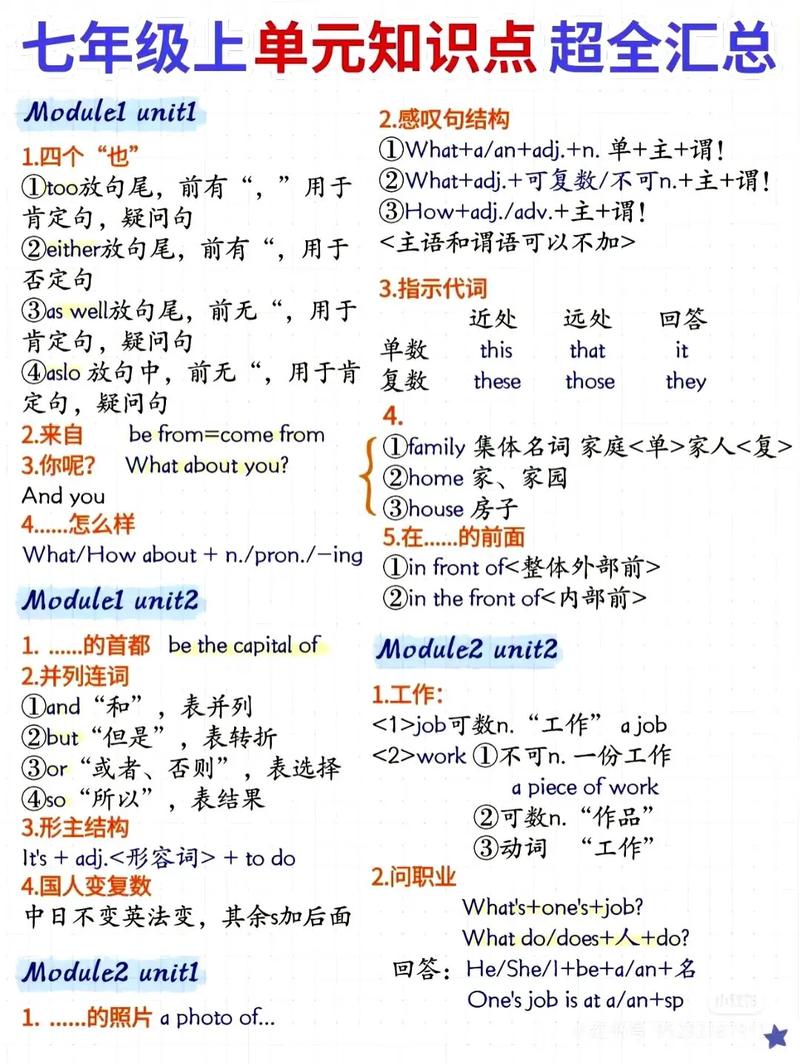 七年级上单元知识点超全汇总
Module1 unit1
1.四个“也”
①too放句尾，前有“，”用于
肯定句，疑问句
②either放句尾，前有“，用于
否定句
③as well放句尾，前无“，用于
肯定句，疑问句
④aslo 放句中，前无“，用于肯
定句，疑问句
2.来自 be from=come from
3.你呢？ What about you?
And you
4......怎么样
What/How about + n./pron./-ing
Module1 unit2
1. ......的首都 be the capital of
2.并列连词
①and“和”，表并列
②but“但是”，表转折
③or“或者、否则”，表选择
④so“所以”，表结果
3.形主结构
It's + adj.<形容词> + to do
4.国人变复数
中日不变英法变，其余s加后面
Module2 unit1
1. ......的照片 a photo of...
2.感叹句结构
①What+a/an+adj.+n. 单+主+谓！
②What+adj.+可复数/不可n.+主+谓！
③How+adj./adv.+主+谓！
<主语和谓语可以不加>
3.指示代词
近处 远处 回答
单数 this that it
复数 these those they
4.
①family 集体名词 家庭<单>家人<复>
②home 家、家园
③house 房子
5.在......的前面
①in front of<整体外部前>
②in the front of<内部前>
Module2 unit2
1.工作：
<1>job可数n.“工作” a job
<2>work ①不可n. 一份工作
a piece of work
②可数n.“作品”
③动词 “工作”
2.问职业
What's+one's+job?
What do/does+人+do?
回答：He/She/I+be+a/an+名
One's job is at a/an+sp
小红书